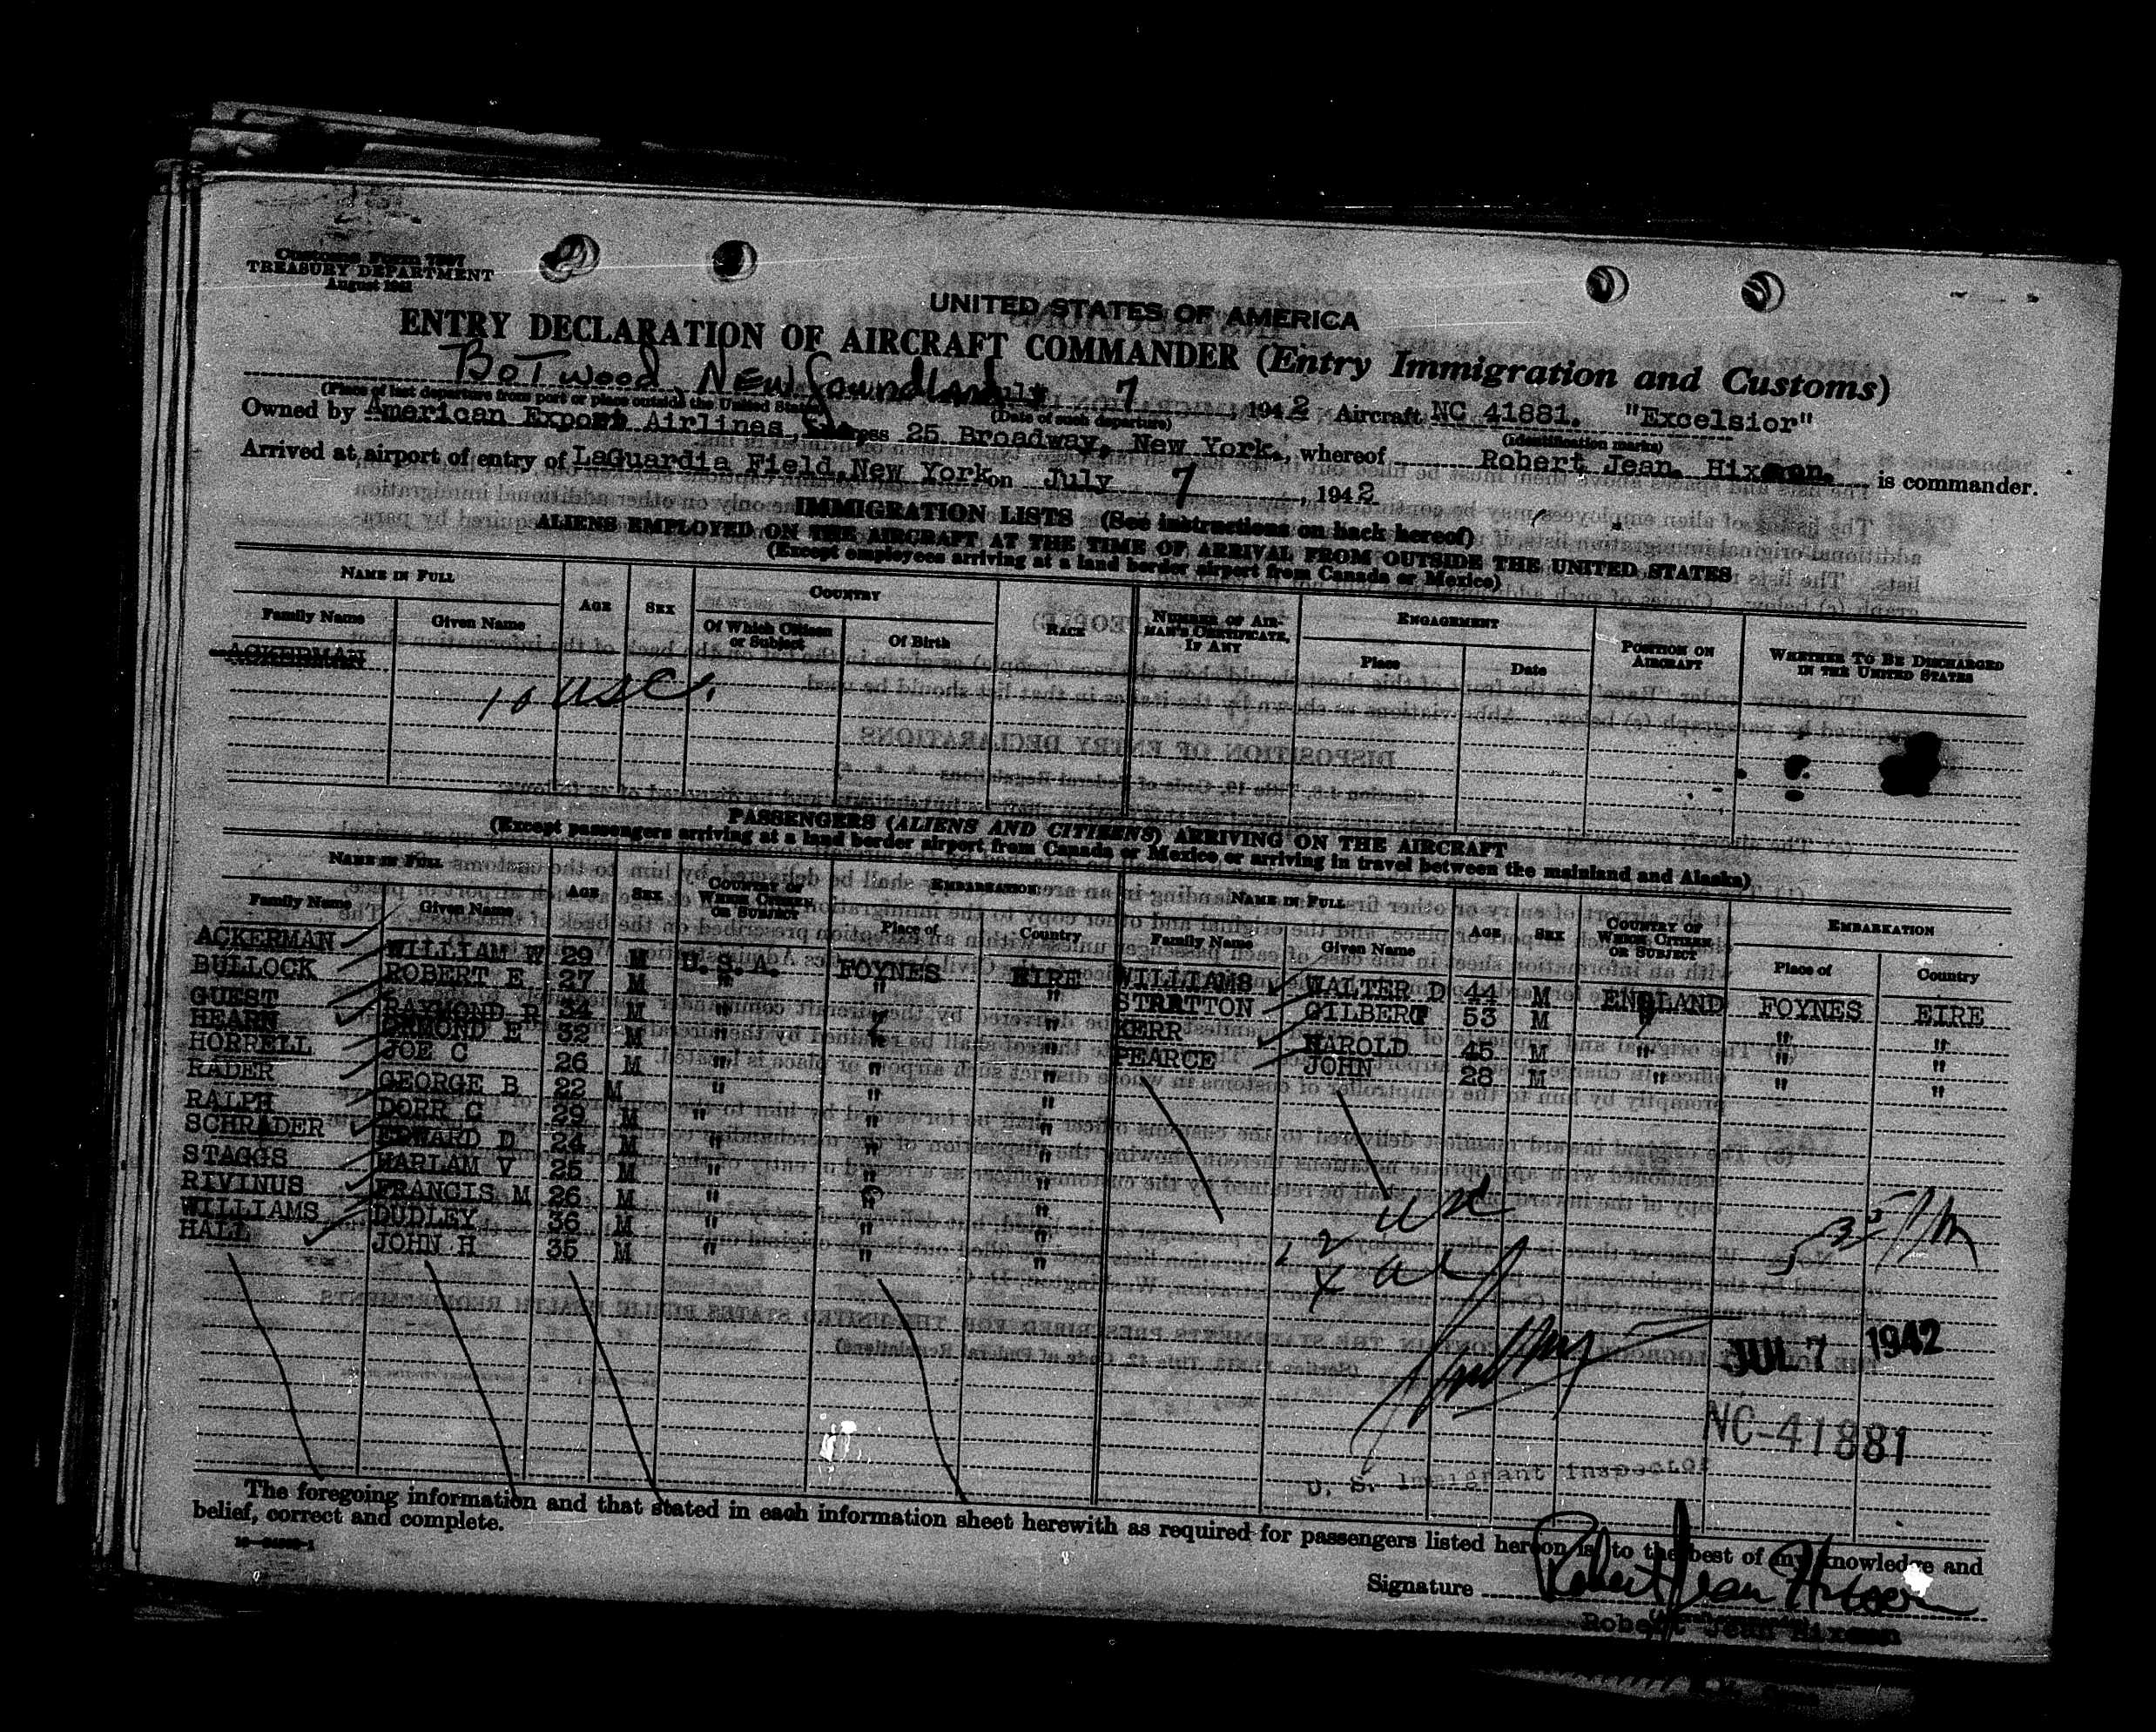 Customs Form 7507
TREASURY DEPARTMENT
UNITED STATES OF AMERICA
ENTRY DECLARATION OF AIRCRAFT COMMANDER (Entry Immigration and Customs)
Botwood, Newfoundland July 7, 1942 Aircraft NC 41881. "Excelsior"
(Place of last departure from port or place outside the United States) (Date of such departure) (Identification marks)
Owned by American Export Airlines, 25 Broadway, New York., whereof Robert Jean Hixson. is commander.
Arrived at airport of entry of LaGuardia Field, New York on July 7, 1942
IMMIGRATION LISTS (See instructions on back hereof)
ALIENS EMPLOYED ON THE AIRCRAFT AT THE TIME OF ARRIVAL FROM OUTSIDE THE UNITED STATES
(Except employees arriving at a land border airport from Canada or Mexico)
NAME IN FULL AGE SEX COUNTRY RACE NUMBER OF AIRMAN'S CERTIFICATE, IF ANY ENGAGEMENT POSITION ON AIRCRAFT WHETHER TO BE DISCHARGED IN THE UNITED STATES
Family Name Given Name Of Which Citizen or Subject Of Birth Place Date
ACKERMAN
10 USC.
PASSENGERS (ALIENS AND CITIZENS) ARRIVING ON THE AIRCRAFT
(Except passengers arriving at a land border airport from Canada or Mexico or arriving in travel between the mainland and Alaska)
NAME IN FULL AGE SEX COUNTRY OF WHICH CITIZEN OR SUBJECT EMBARKATION NAME IN FULL AGE SEX COUNTRY OF WHICH CITIZEN OR SUBJECT EMBARKATION
Family Name Given Name Place of Country Family Name Given Name Place of Country
ACKERMAN WILLIAM W 29 M U.S.A. FOYNES EIRE WILLIAMS WALTER D 44 M ENGLAND FOYNES EIRE
BULLOCK ROBERT E 27 M " " " STRATTON GILBERT 53 M " " "
GUEST RAYMOND R 34 M " " " KERR HAROLD 45 M " " "
HEARN ORMOND E 32 M " " " PEARCE JOHN 28 M " " "
HORRELL JOE C 26 M " " "
RADER GEORGE B 22 M " " "
RALPH DORR C 29 M " " "
SCHRADER EDWARD D 24 M " " "
STAGGS HARLAM V 25 M " " "
RIVINUS FRANCIS M 26 M " " "
WILLIAMS DUDLEY 36 M " " "
HALL JOHN H 35 M " " "
12 USC
4 al
JUL 7 1942
NC-41881
U. S. Immigrant Inspector
The foregoing information and that stated in each information sheet herewith as required for passengers listed hereon is, to the best of my knowledge and
belief, correct and complete.
Signature Robert Jean Hixson
Robert Jean Hixson